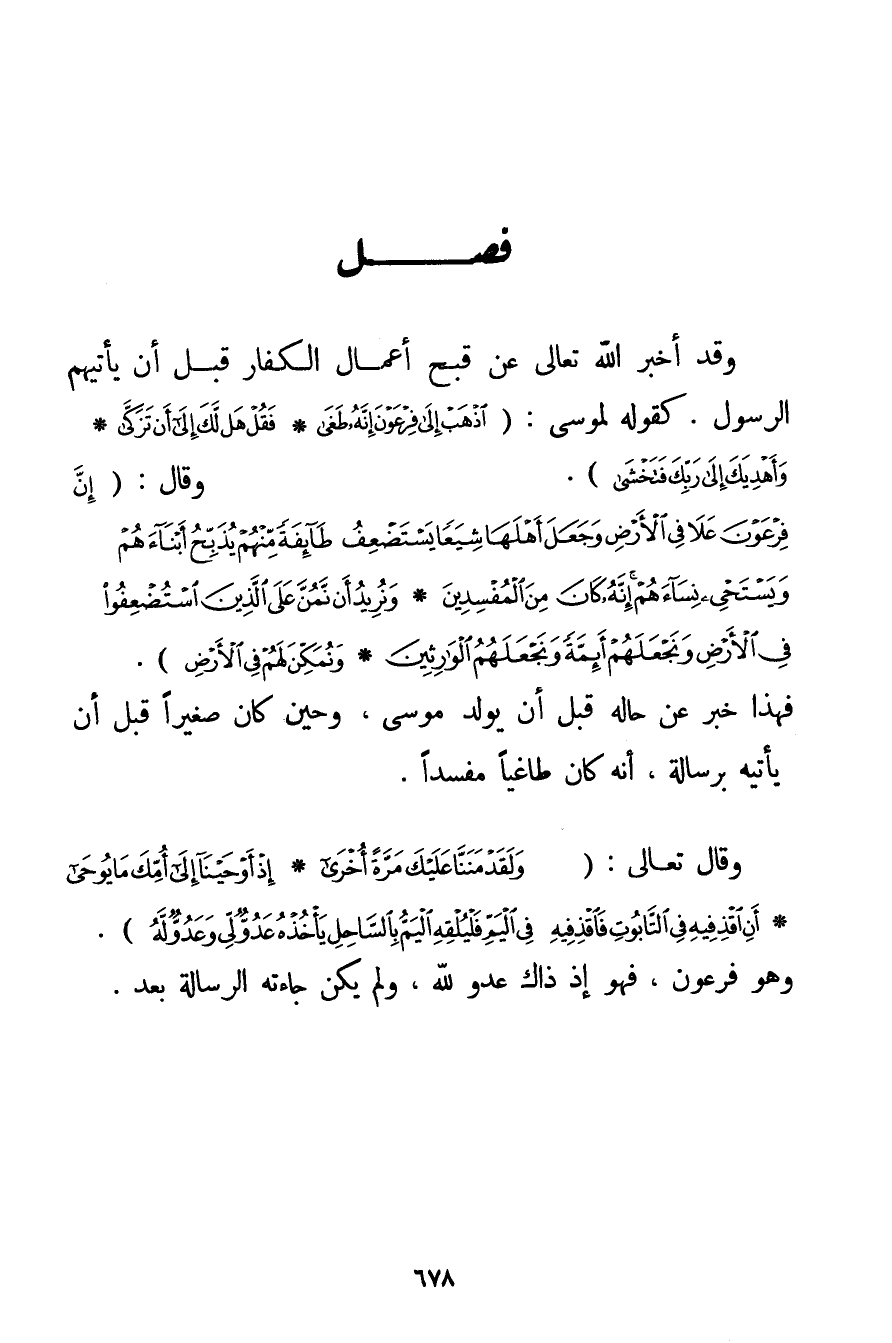 فصـــــــل
وقد أخبر الله تعالى عن قبح أعمـال الكفار قبـل أن يأتيهم
الرسول . كقوله لموسى : ( ٱذْهَبْ إِلَىٰ فِرْعَوْنَ إِنَّهُۥ طَغَىٰ * فَقُلْ هَل لَّكَ إِلَىٰٓ أَن تَزَكَّىٰ *
وَأَهْدِيَكَ إِلَىٰ رَبِّكَ فَتَخْشَىٰ ) . وقال : ( إِنَّ
فِرْعَوْنَ عَلَا فِى ٱلْأَرْضِ وَجَعَلَ أَهْلَهَا شِيَعًا يَسْتَضْعِفُ طَآئِفَةً مِّنْهُمْ يُذَبِّحُ أَبْنَآءَهُمْ
وَيَسْتَحْىِۦ نِسَآءَهُمْ ۚ إِنَّهُۥ كَانَ مِنَ ٱلْمُفْسِدِينَ * وَنُرِيدُ أَن نَّمُنَّ عَلَى ٱلَّذِينَ ٱسْتُضْعِفُوا۟
فِى ٱلْأَرْضِ وَنَجْعَلَهُمْ أَئِمَّةً وَنَجْعَلَهُمُ ٱلْوَٰرِثِينَ * وَنُمَكِّنَ لَهُمْ فِى ٱلْأَرْضِ ) .
فهذا خبر عن حاله قبل أن يولد موسى ، وحين كان صغيراً قبل أن
يأتيه برسالة ، أنه كان طاغياً مفسداً .
وقال تعـالى : ( وَلَقَدْ مَنَنَّا عَلَيْكَ مَرَّةً أُخْرَىٰٓ * إِذْ أَوْحَيْنَآ إِلَىٰٓ أُمِّكَ مَا يُوحَىٰٓ
* أَنِ ٱقْذِفِيهِ فِى ٱلتَّابُوتِ فَٱقْذِفِيهِ فِى ٱلْيَمِّ فَلْيُلْقِهِ ٱلْيَمُّ بِٱلسَّاحِلِ يَأْخُذْهُ عَدُوٌّ لِّى وَعَدُوٌّ لَّهُۥ ) .
وهو فرعون ، فهو إذ ذاك عدو لله ، ولم يكن جاءته الرسالة بعد .
٦٧٨